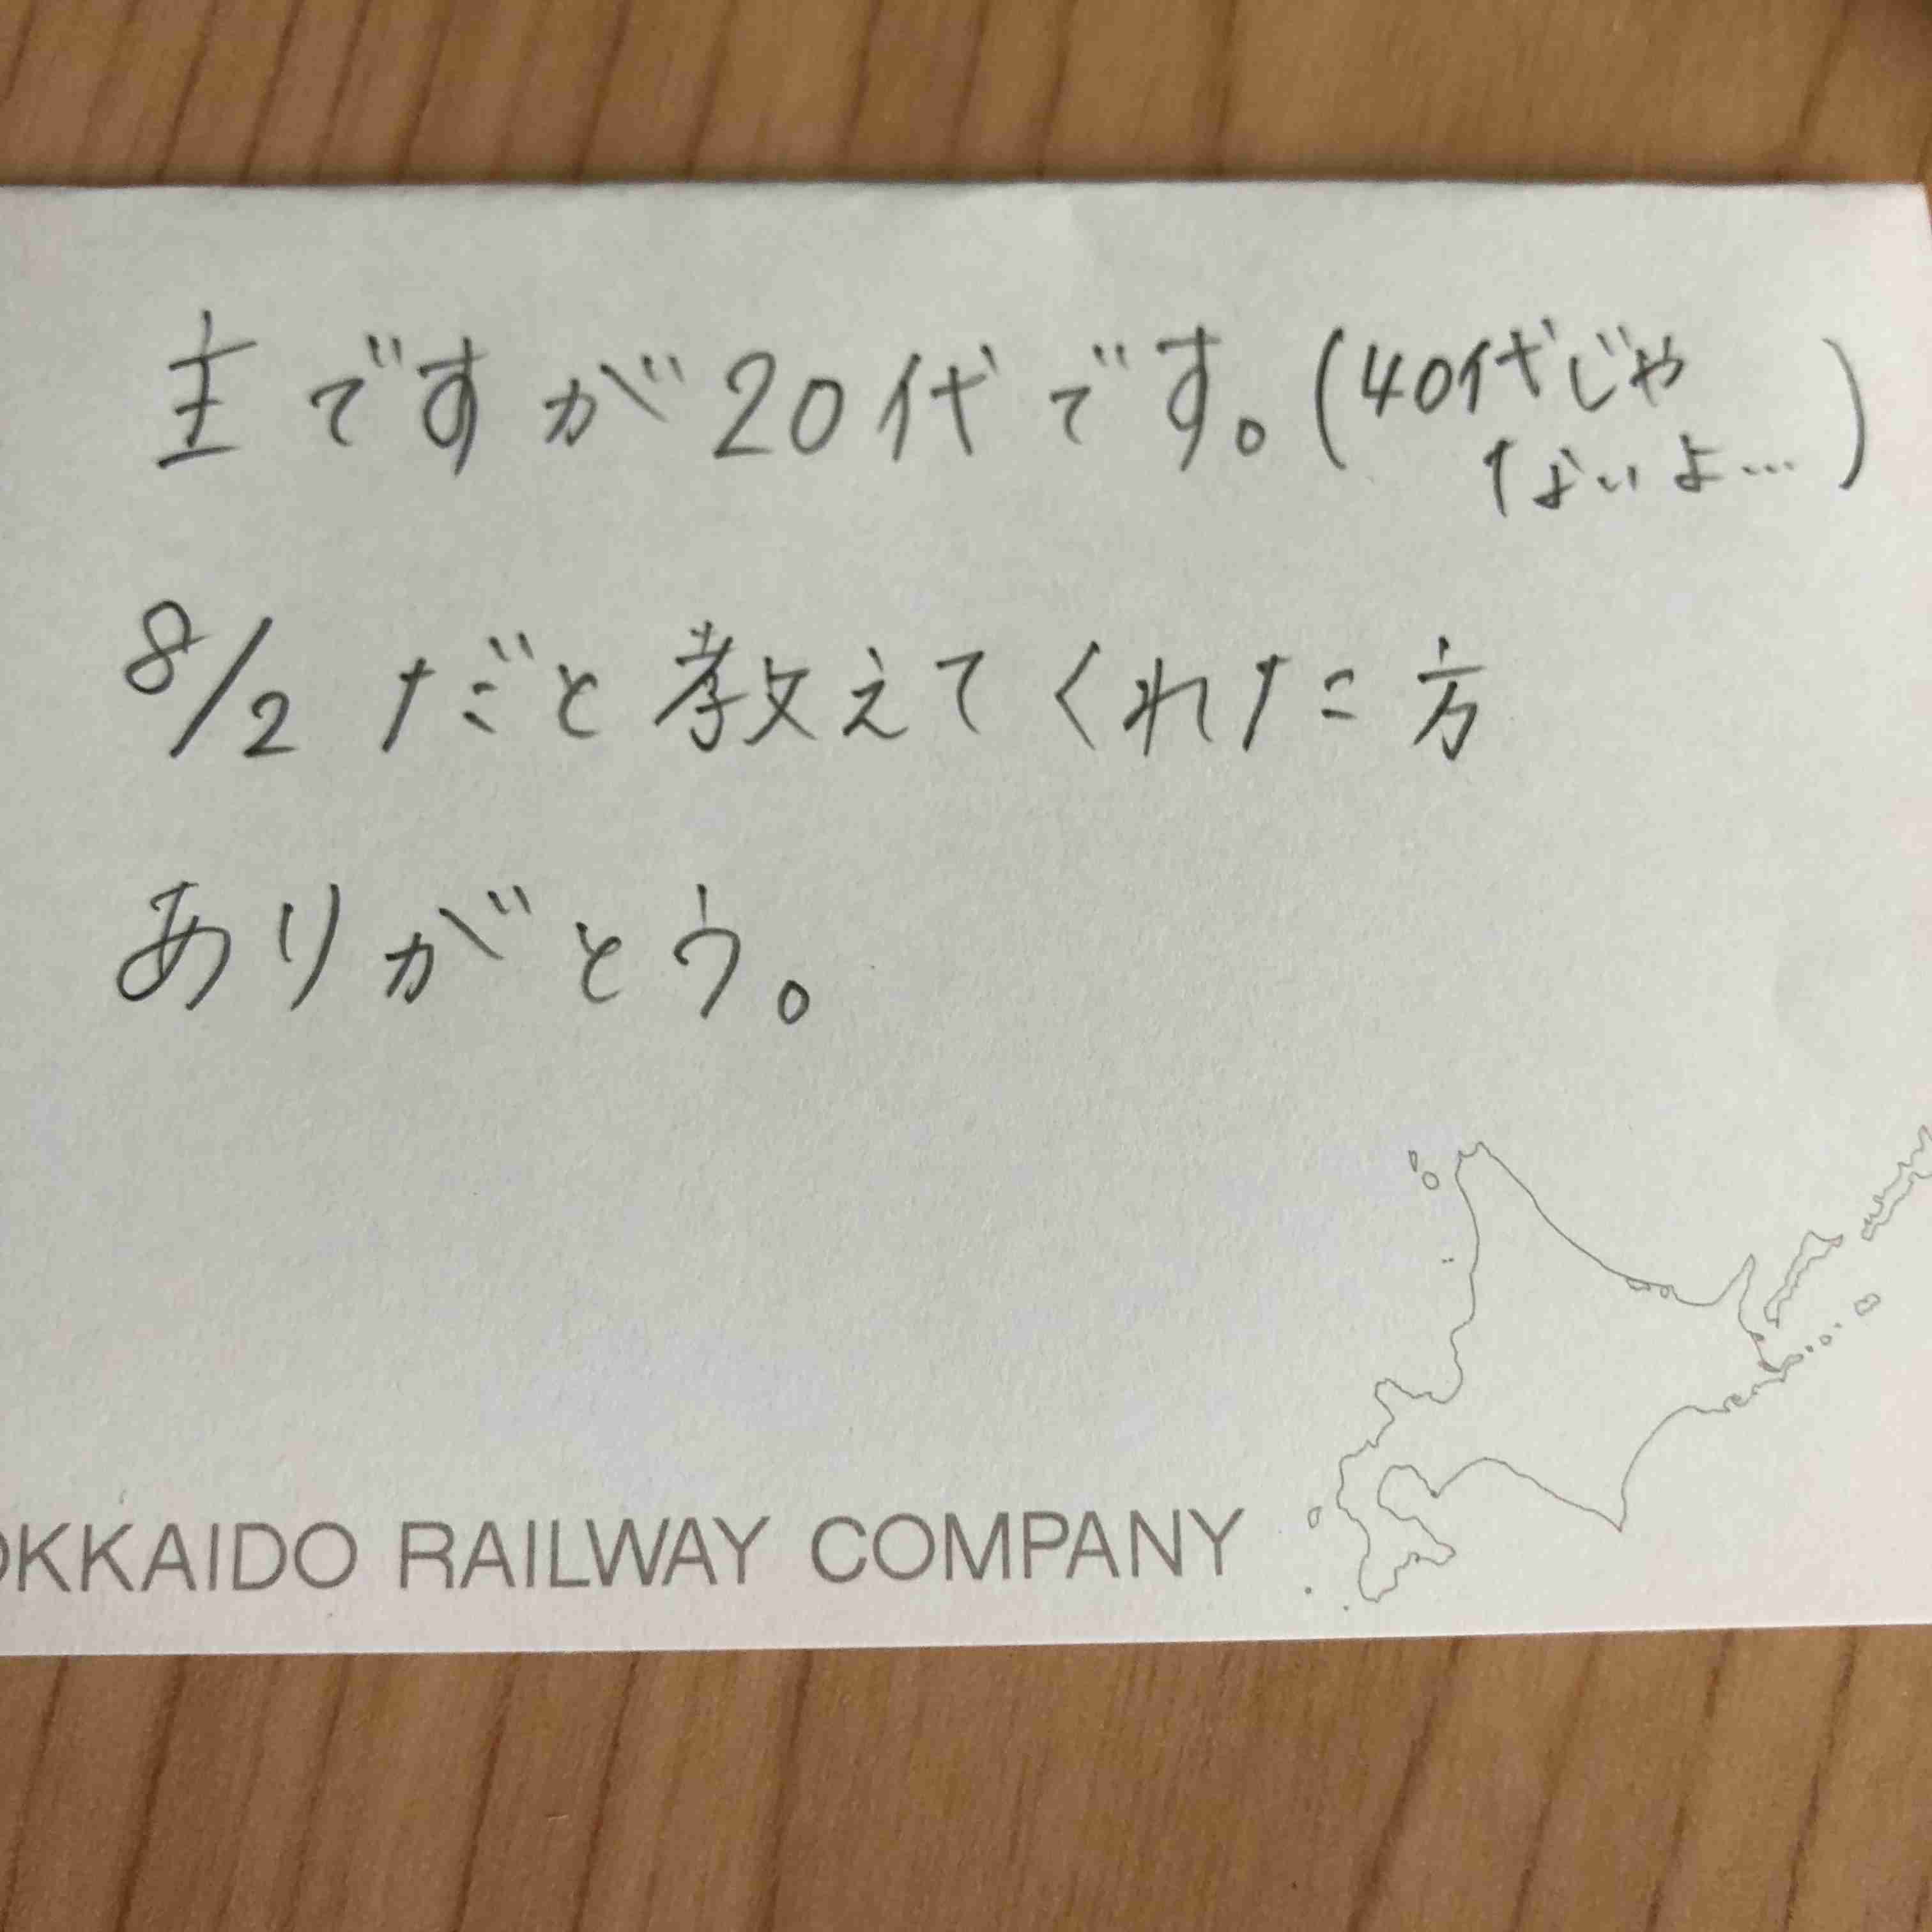 主ですが20代です。(40代じゃ
ないよ…)
8/2 だと教えてくれた方
ありがとう。
OKKAIDO RAILWAY COMPANY